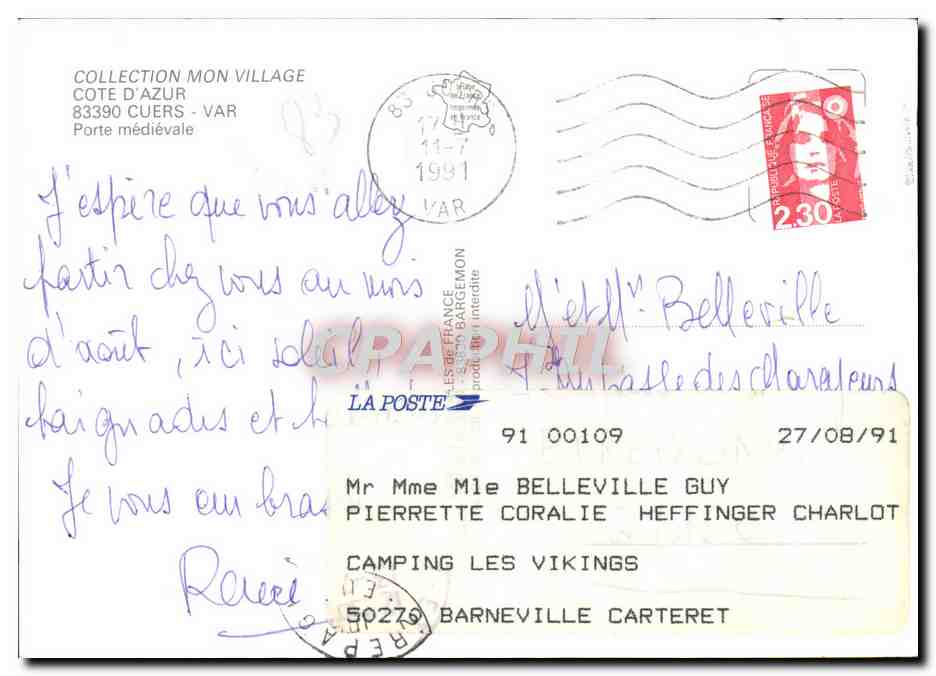 COLLECTION MON VILLAGE
COTE D'AZUR
83390 CUERS - VAR
Porte médiévale
83
17
11-7
1991
VAR
RÉPUBLIQUE FRANÇAISE
2.30
LA POSTE
J'espère que vous allez
partir chez vous au mois
d'août, ici soleil
baignades et
Je vous embras
René
LES de FRANCE
83830 BARGEMON
production interdite
CPAPHIL
Mr et Mme Belleville
des
LA POSTE
91 00109 27/08/91
Mr Mme Mle BELLEVILLE GUY
PIERRETTE CORALIE HEFFINGER CHARLOT
CAMPING LES VIKINGS
50270 BARNEVILLE CARTERET